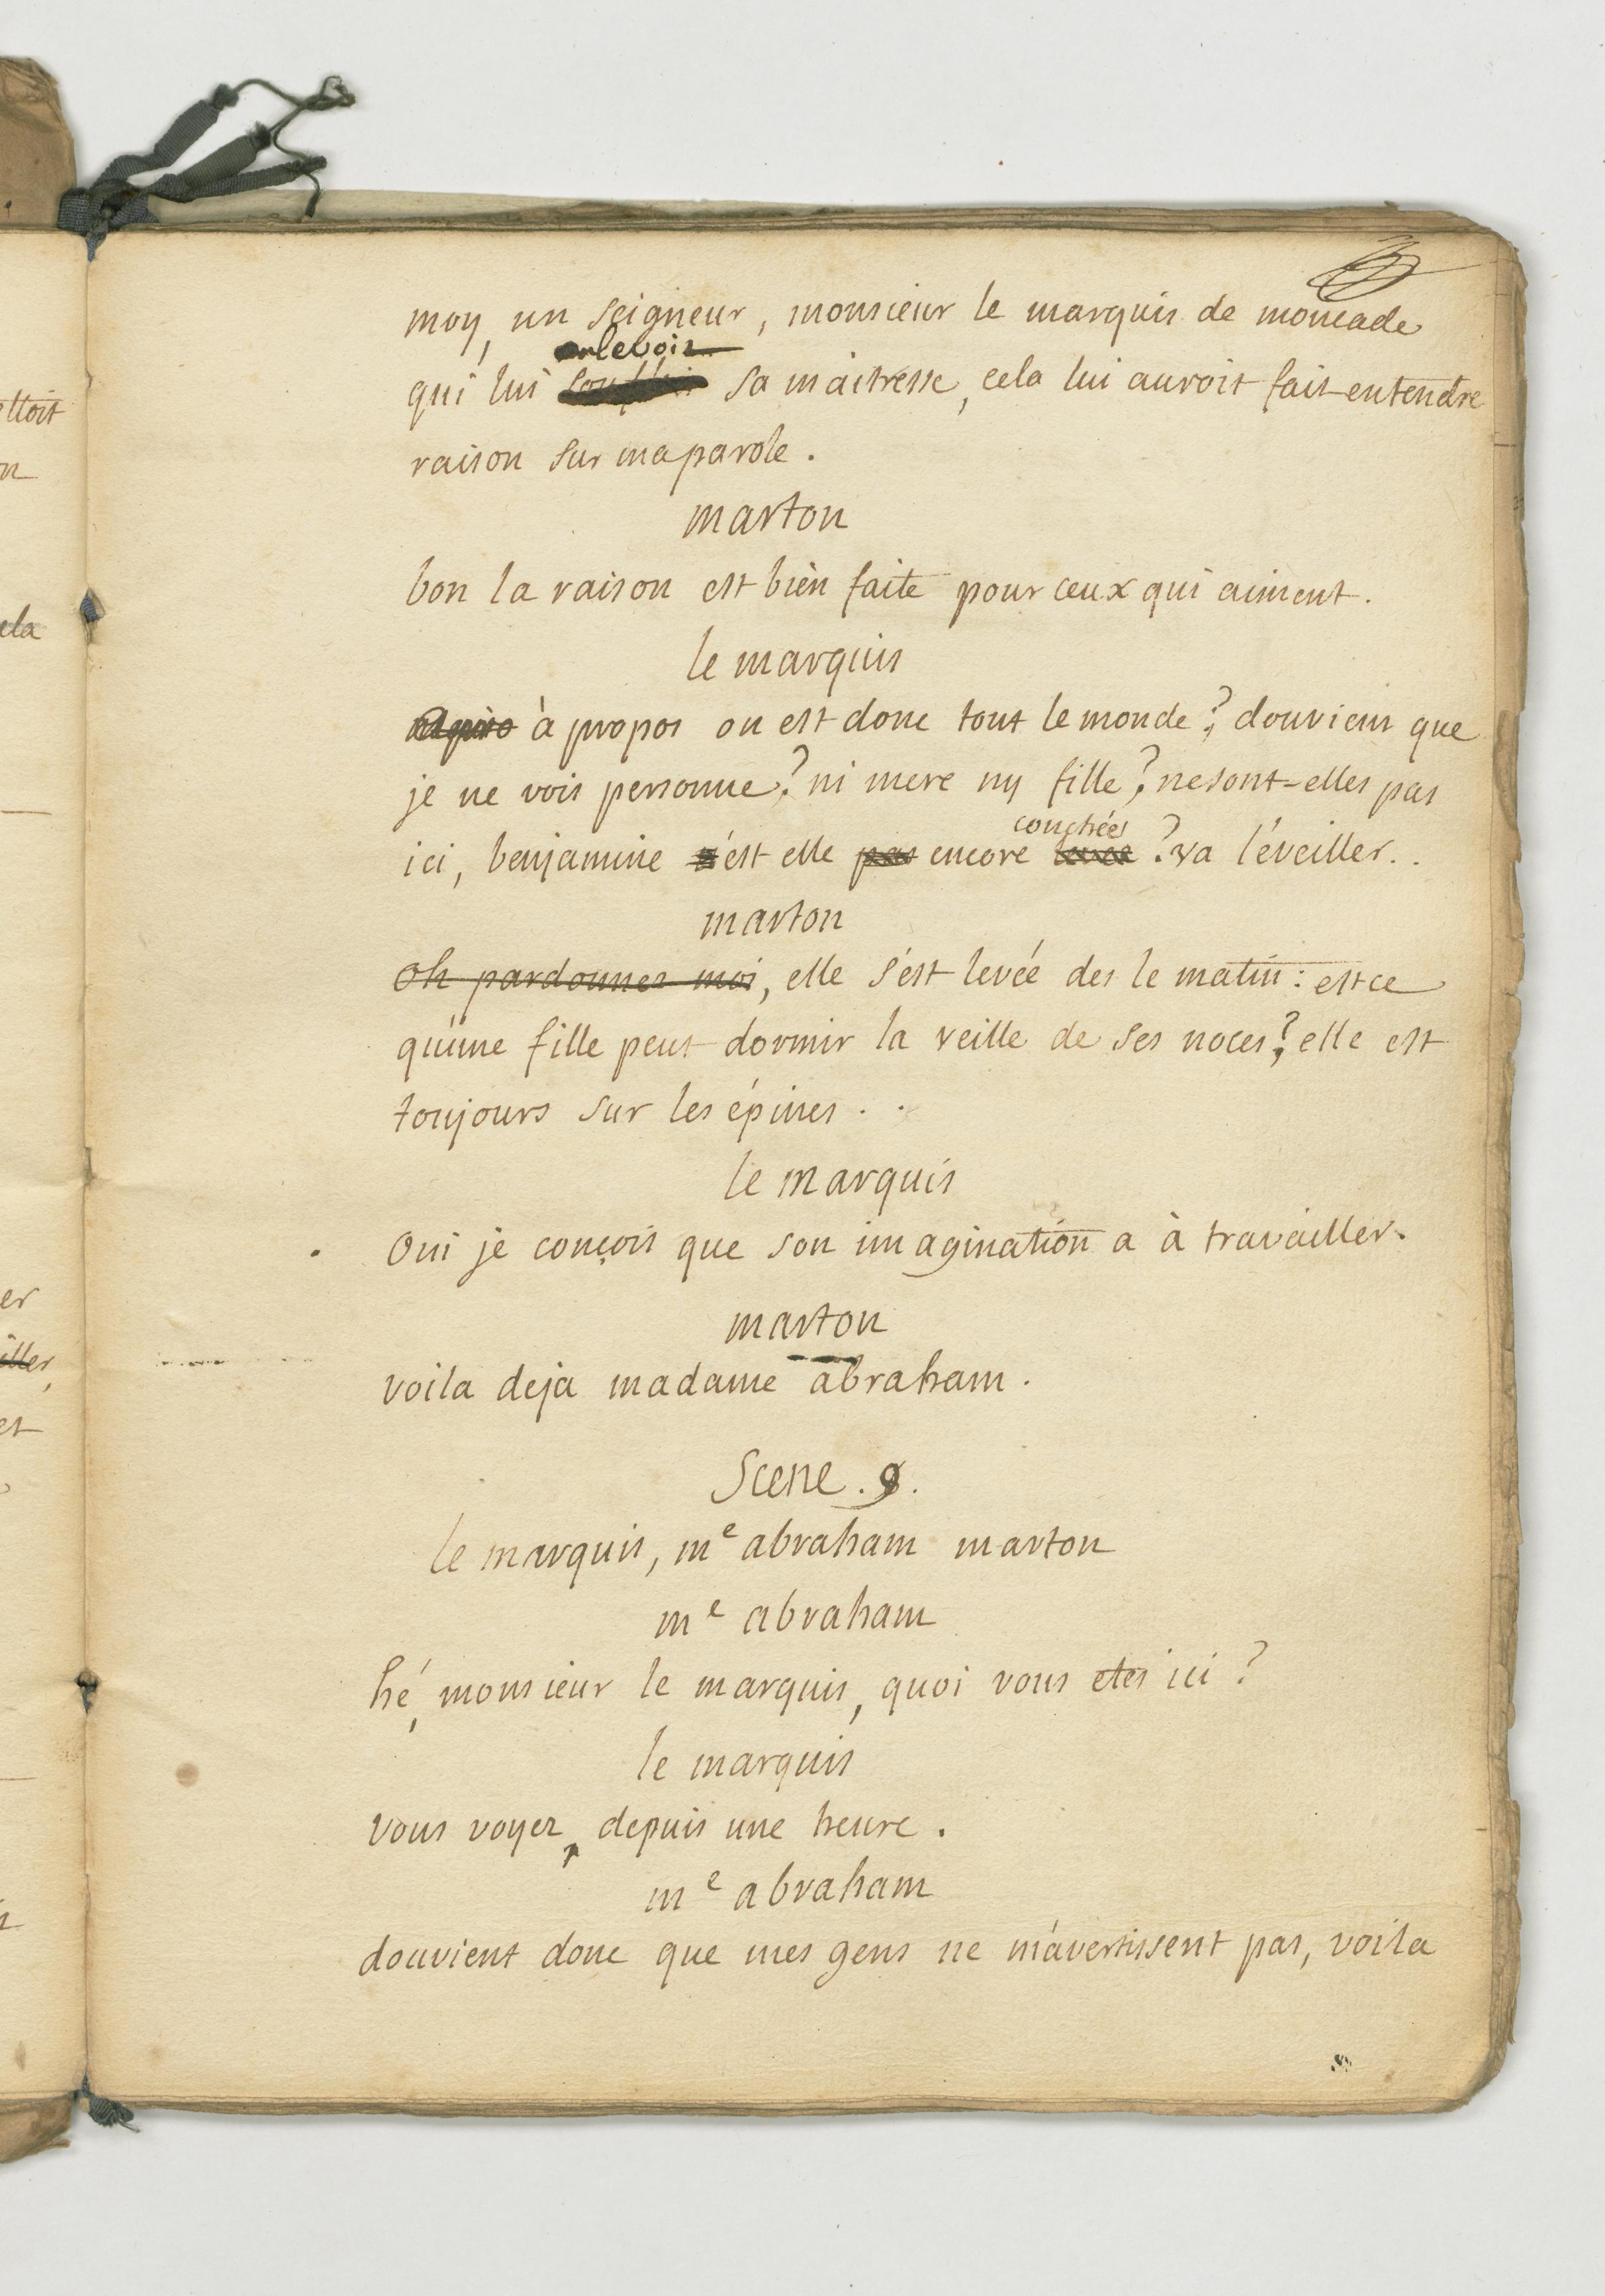 moy, un seigneur, monsieur le marquis de moncade
enlevoit
qui lui sa maitresse, cela lui auroit fait entendre
raison sur ma parole.
marton
bon la raison est bien faite pour ceux qui aiment.
le marquis
à propos ou est donc tout le monde? douvient que
je ne vois personne? ni mere ny fille? ne sont-elles pas
couchée
ici, benjamine n'est elle pas encore levée? va l'éveiller..
marton
oh pardonnez moi, elle s'est levée des le matin: est ce
qu'une fille peut dormir la veille de ses noces? elle est
toujours sur les épines..
le marquis
Oui je conçois que son imagination a à travailler.
marton
voila deja madame abraham.
Scene. 9.
le marquis, me abraham marton
me abraham
hé, monsieur le marquis, quoi vous etes ici?
le marquis
vous voyez, depuis une heure.
me abraham
douvient donc que mes gens ne m'avertissent pas, voila
ettoit
ela
er
iller,
et